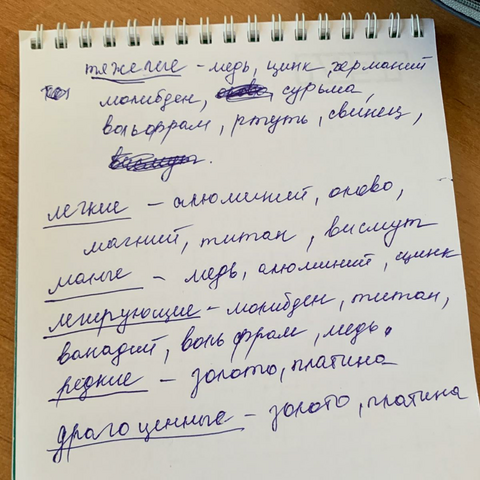 тяжелые - медь, цинк, германий
молибден, сурьма,
вольфрам, ртуть, свинец,
легкие - алюминий, олово,
магний, титан, висмут
малые - медь, алюминий, цинк
легирующие - молибден, титан,
ванадий, вольфрам, медь.
редкие - золото, платина
драгоценные - золото, платина